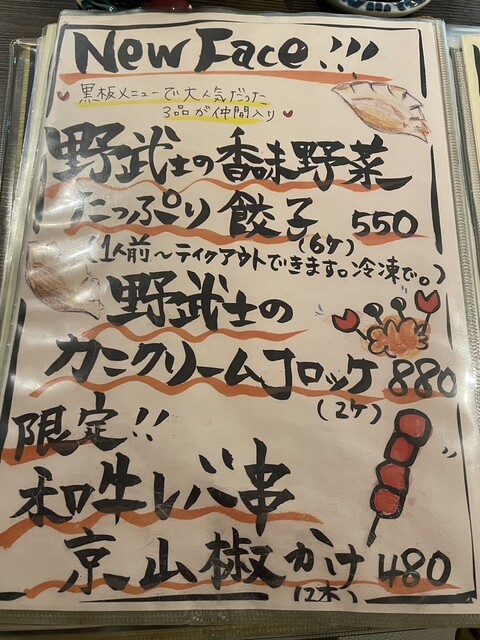 New Face!!!
黒板メニューで大人気だった
3品が仲間入り
野武士の香味野菜
たっぷり餃子 550
(6ケ)
(1人前〜テイクアウトできます。冷凍で。)
野武士の
カニクリームコロッケ 880
(2ケ)
限定!!
和牛レバ串
京山椒かけ 480
(2本)